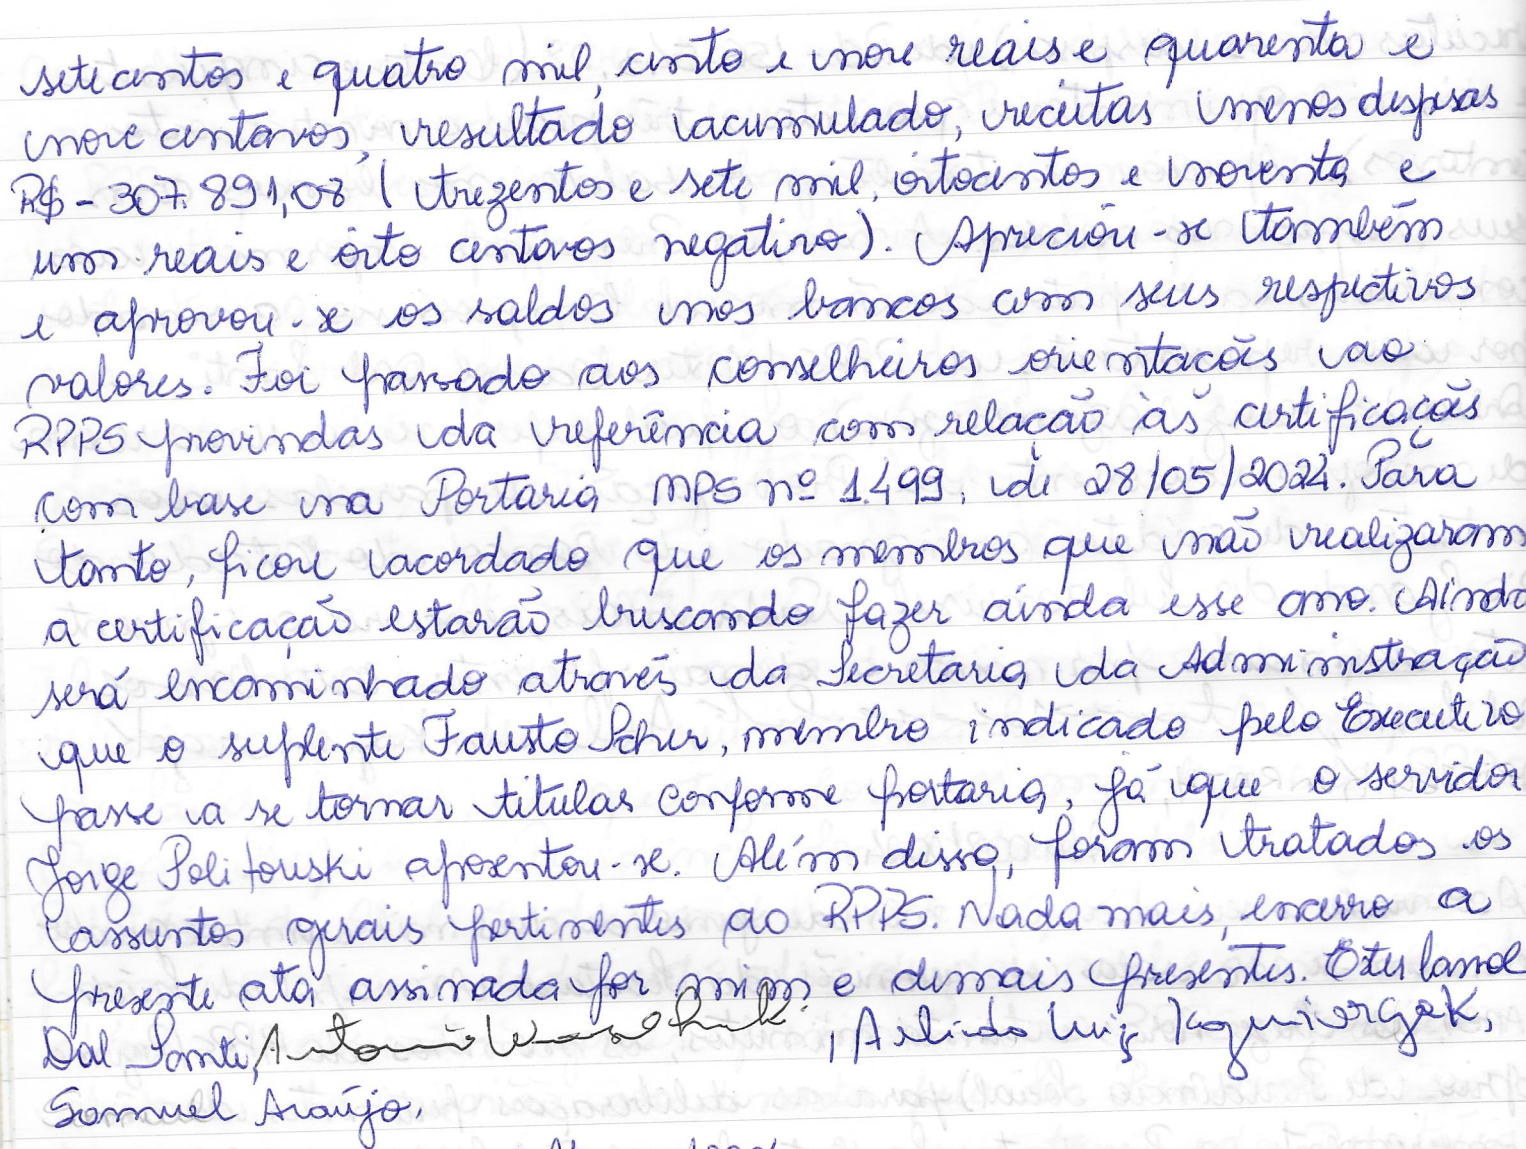 setecentos e quatro mil, cento e nove reais e quarenta e
nove centavos, resultado acumulado, receitas menos despesas
R$ - 307.891,08 (trezentos e sete mil, oitocentos e noventa e
um reais e oito centavos negativo). Apreciou-se também
e aprovou-se os saldos nos bancos com seus respectivos
valores. Foi passado aos conselheiros orientações ao
RPPS provindas da referência com relação às certificações
com base na Portaria MPS nº 1.499, de 28/05/2024. Para
tanto, ficou acordado que os membros que não realizaram
a certificação estarão buscando fazer ainda esse ano. Ainda
será encaminhado através da Secretaria da Administração
que o suplente Fausto Scher, membro indicado pelo Executivo
passe a se tornar titular conforme portaria, já que o servidor
Jorge Politowski aposentou-se. Além disso, foram tratados os
assuntos gerais pertinentes ao RPPS. Nada mais, encerro a
presente ata assinada por mim e demais presentes.
Dal Santi, Antonio , Arlindo Luiz
Samuel Araújo.